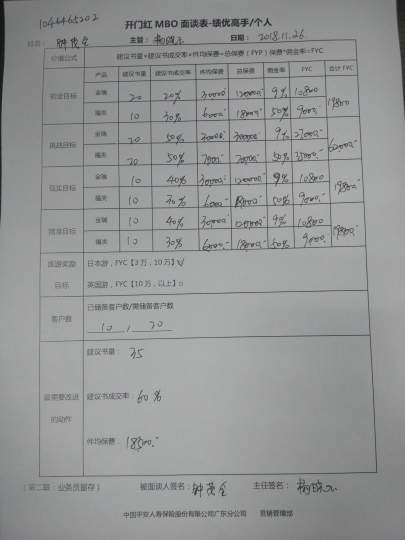 1046465202
开门红 MBO 面谈表-绩优高手/个人
姓名： 钟茂全 主管： 日期： 2018.11.26.
价值公式 建议书量×建议书成交率×件均保费=总保费（FYP）保费*佣金率=FYC
产品 建议书量 建议书成交率 件均保费 总保费 佣金率 FYC 合计 FYC
初定目标 金瑞 20 20% 30000 120000 9% 10800 19800
福天 10 30% 6000 18000 50% 9000
挑战目标 金瑞 20 50% 30000 300000 9% 27000 62000
福天 20 50% 7000 70000 50% 35000
现实目标 金瑞 10 40% 30000 120000 9% 10800 19800
福天 10 30% 6000 18000 50% 9000
精准目标 金瑞 10 40% 30000 120000 9% 10800 19800
福天 10 30% 6000 18000 50% 9000
旅游奖励 日本游，FYC【3 万，10 万】√
目标 英国游，FYC【10 万，以上】○
客户数 已储备客户数/需储备客户数
10 , 20
建议书量： 35
最需要改进的动作 建议书成交率： 60%
件均保费： 18500
（第二联：业务员留存） 被面谈人签名： 钟茂全 主任签名：
中国平安人寿保险股份有限公司广东分公司 营销管理部